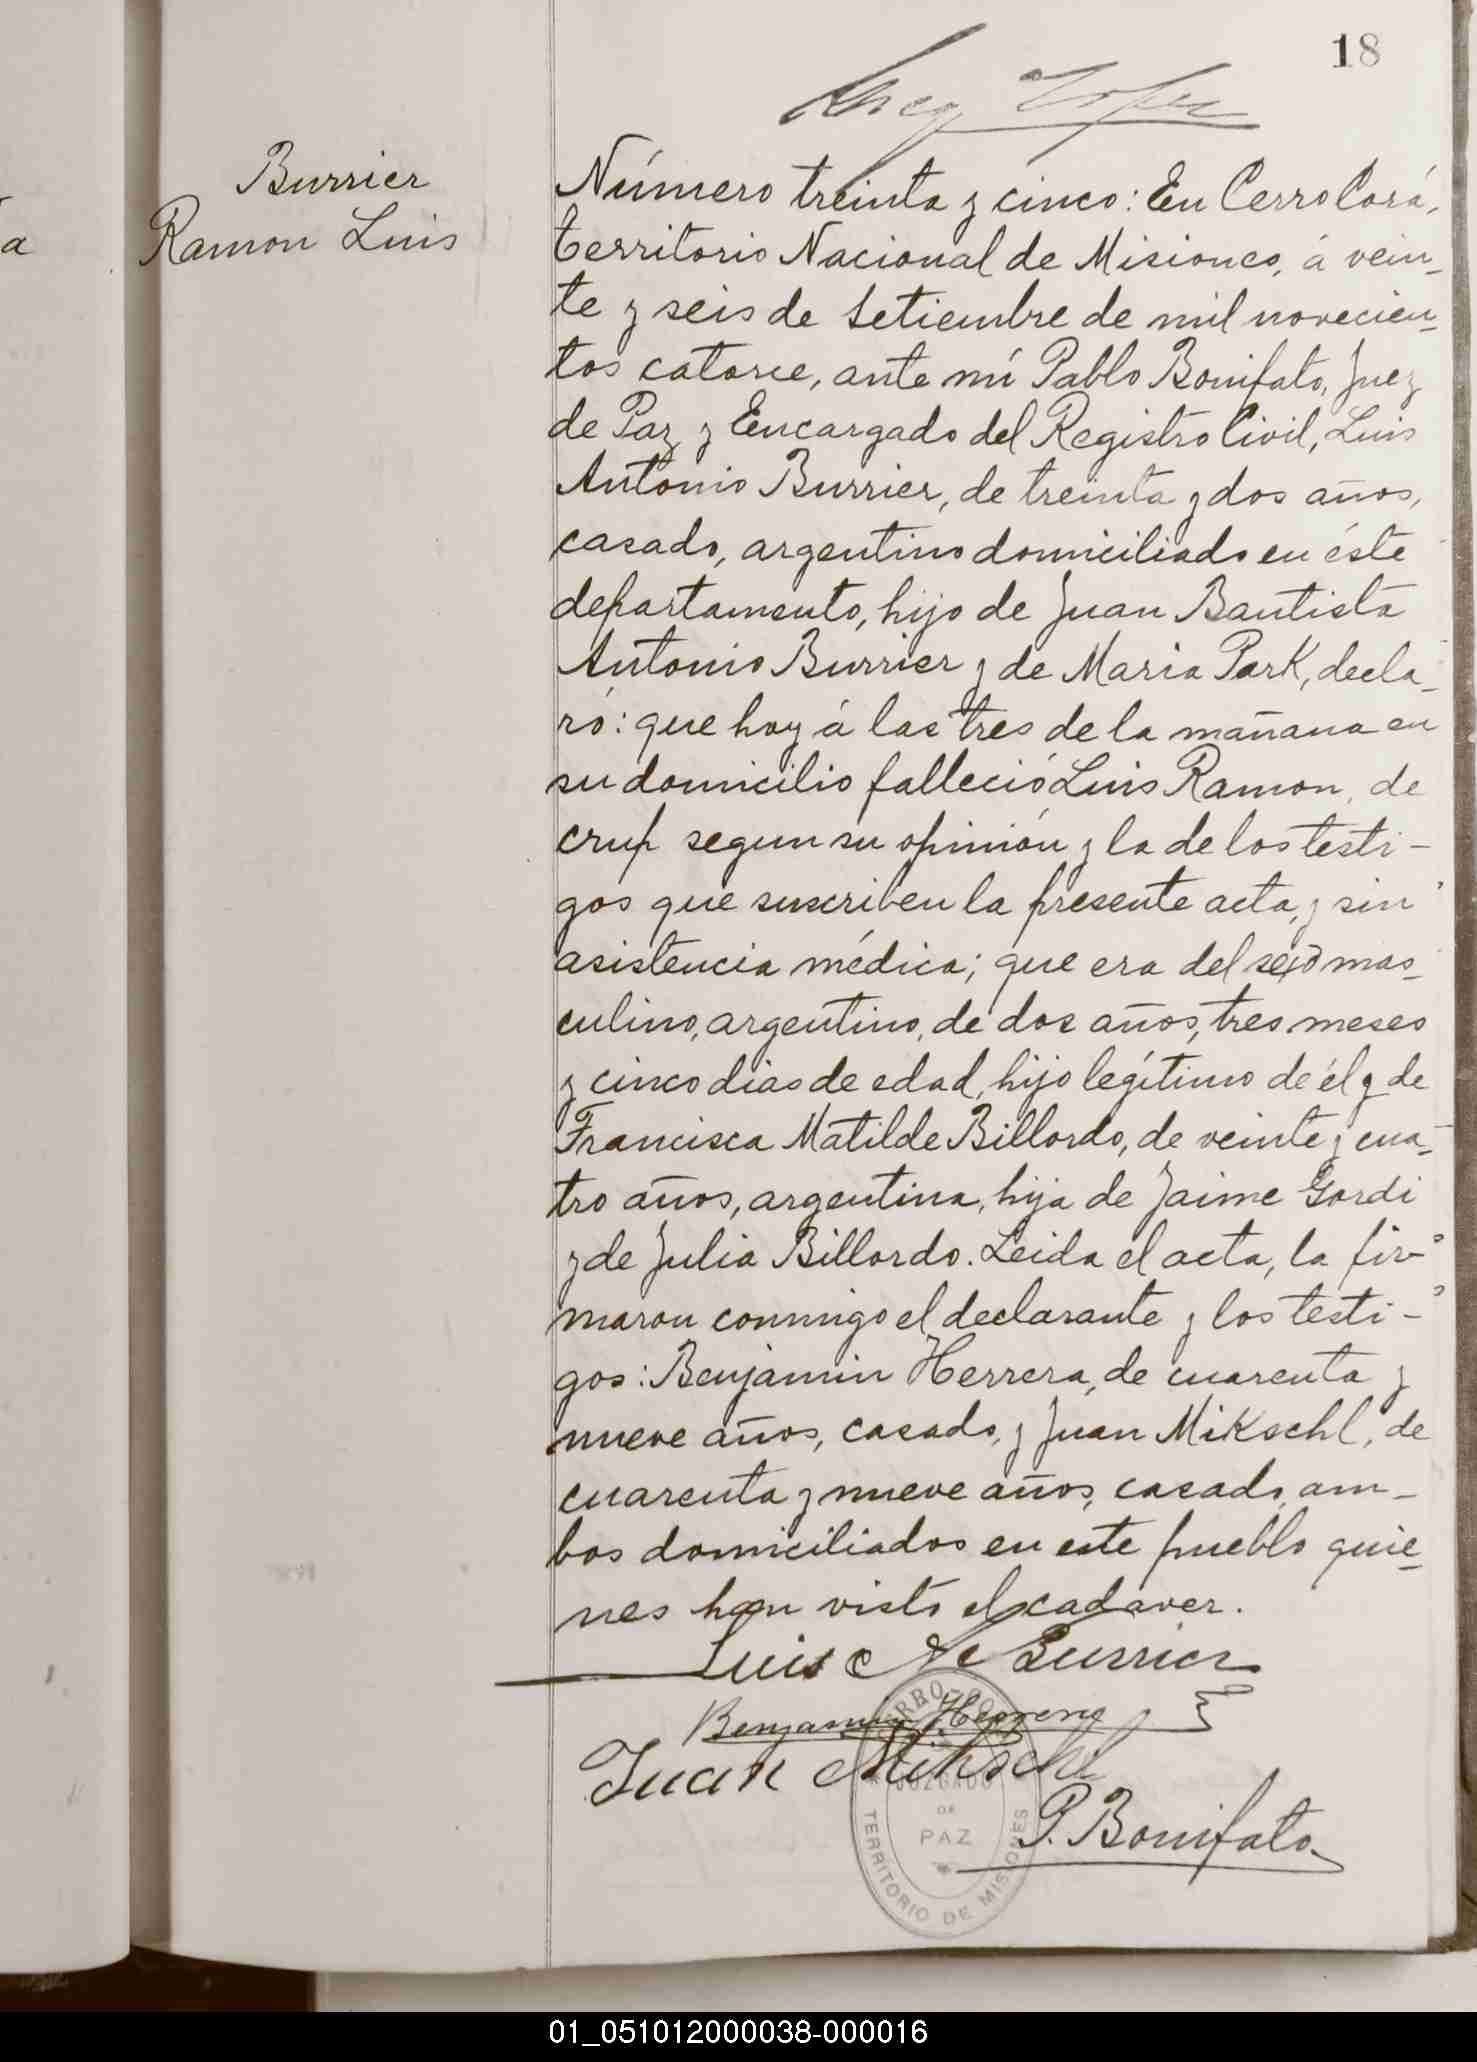 18
a
Burrier
Ramon Luis
Número treinta y cinco: En Cerro Corá,
territorio Nacional de Misiones, á vein_
te y seis de Setiembre de mil novecien_
tos catorce, ante mí Pablo Bonifato, Juez
de Paz y Encargado del Registro Civil, Luis
Antonio Burrier, de treinta y dos años,
casado, argentino domiciliado en éste
departamento, hijo de Juan Bautista
Antonio Burrier y de Maria Park, decla_
ró: que hoy á las tres de la mañana en
su domicilio falleció Luis Ramon, de
crup segun su opinión y la de los testi-
gos que suscriben la presente acta, y sin
asistencia médica; que era del sexo mas_
culino, argentino, de dos años, tres meses
y cinco dias de edad, hijo legítimo de él y de
Francisca Matilde Billordo, de veinte y cua_
tro años, argentina, hija de Jaime Gordi
y de Julia Billordo. Leida el acta, la fir-
maron conmigo el declarante y los testi-
gos: Benjamin Herrera, de cuarenta y
nueve años, casado, y Juan Mikschl, de
cuarenta y nueve años, casado, am_
bos domiciliados en este pueblo quie_
nes han visto el cadaver.
Luis A Burrier
Benjamin Herrera
Juan Mikschl
P. Bonifato
CERRO-CO
JUZGADO
DE
PAZ
TERRITORIO DE MISIONES
01_051012000038-000016